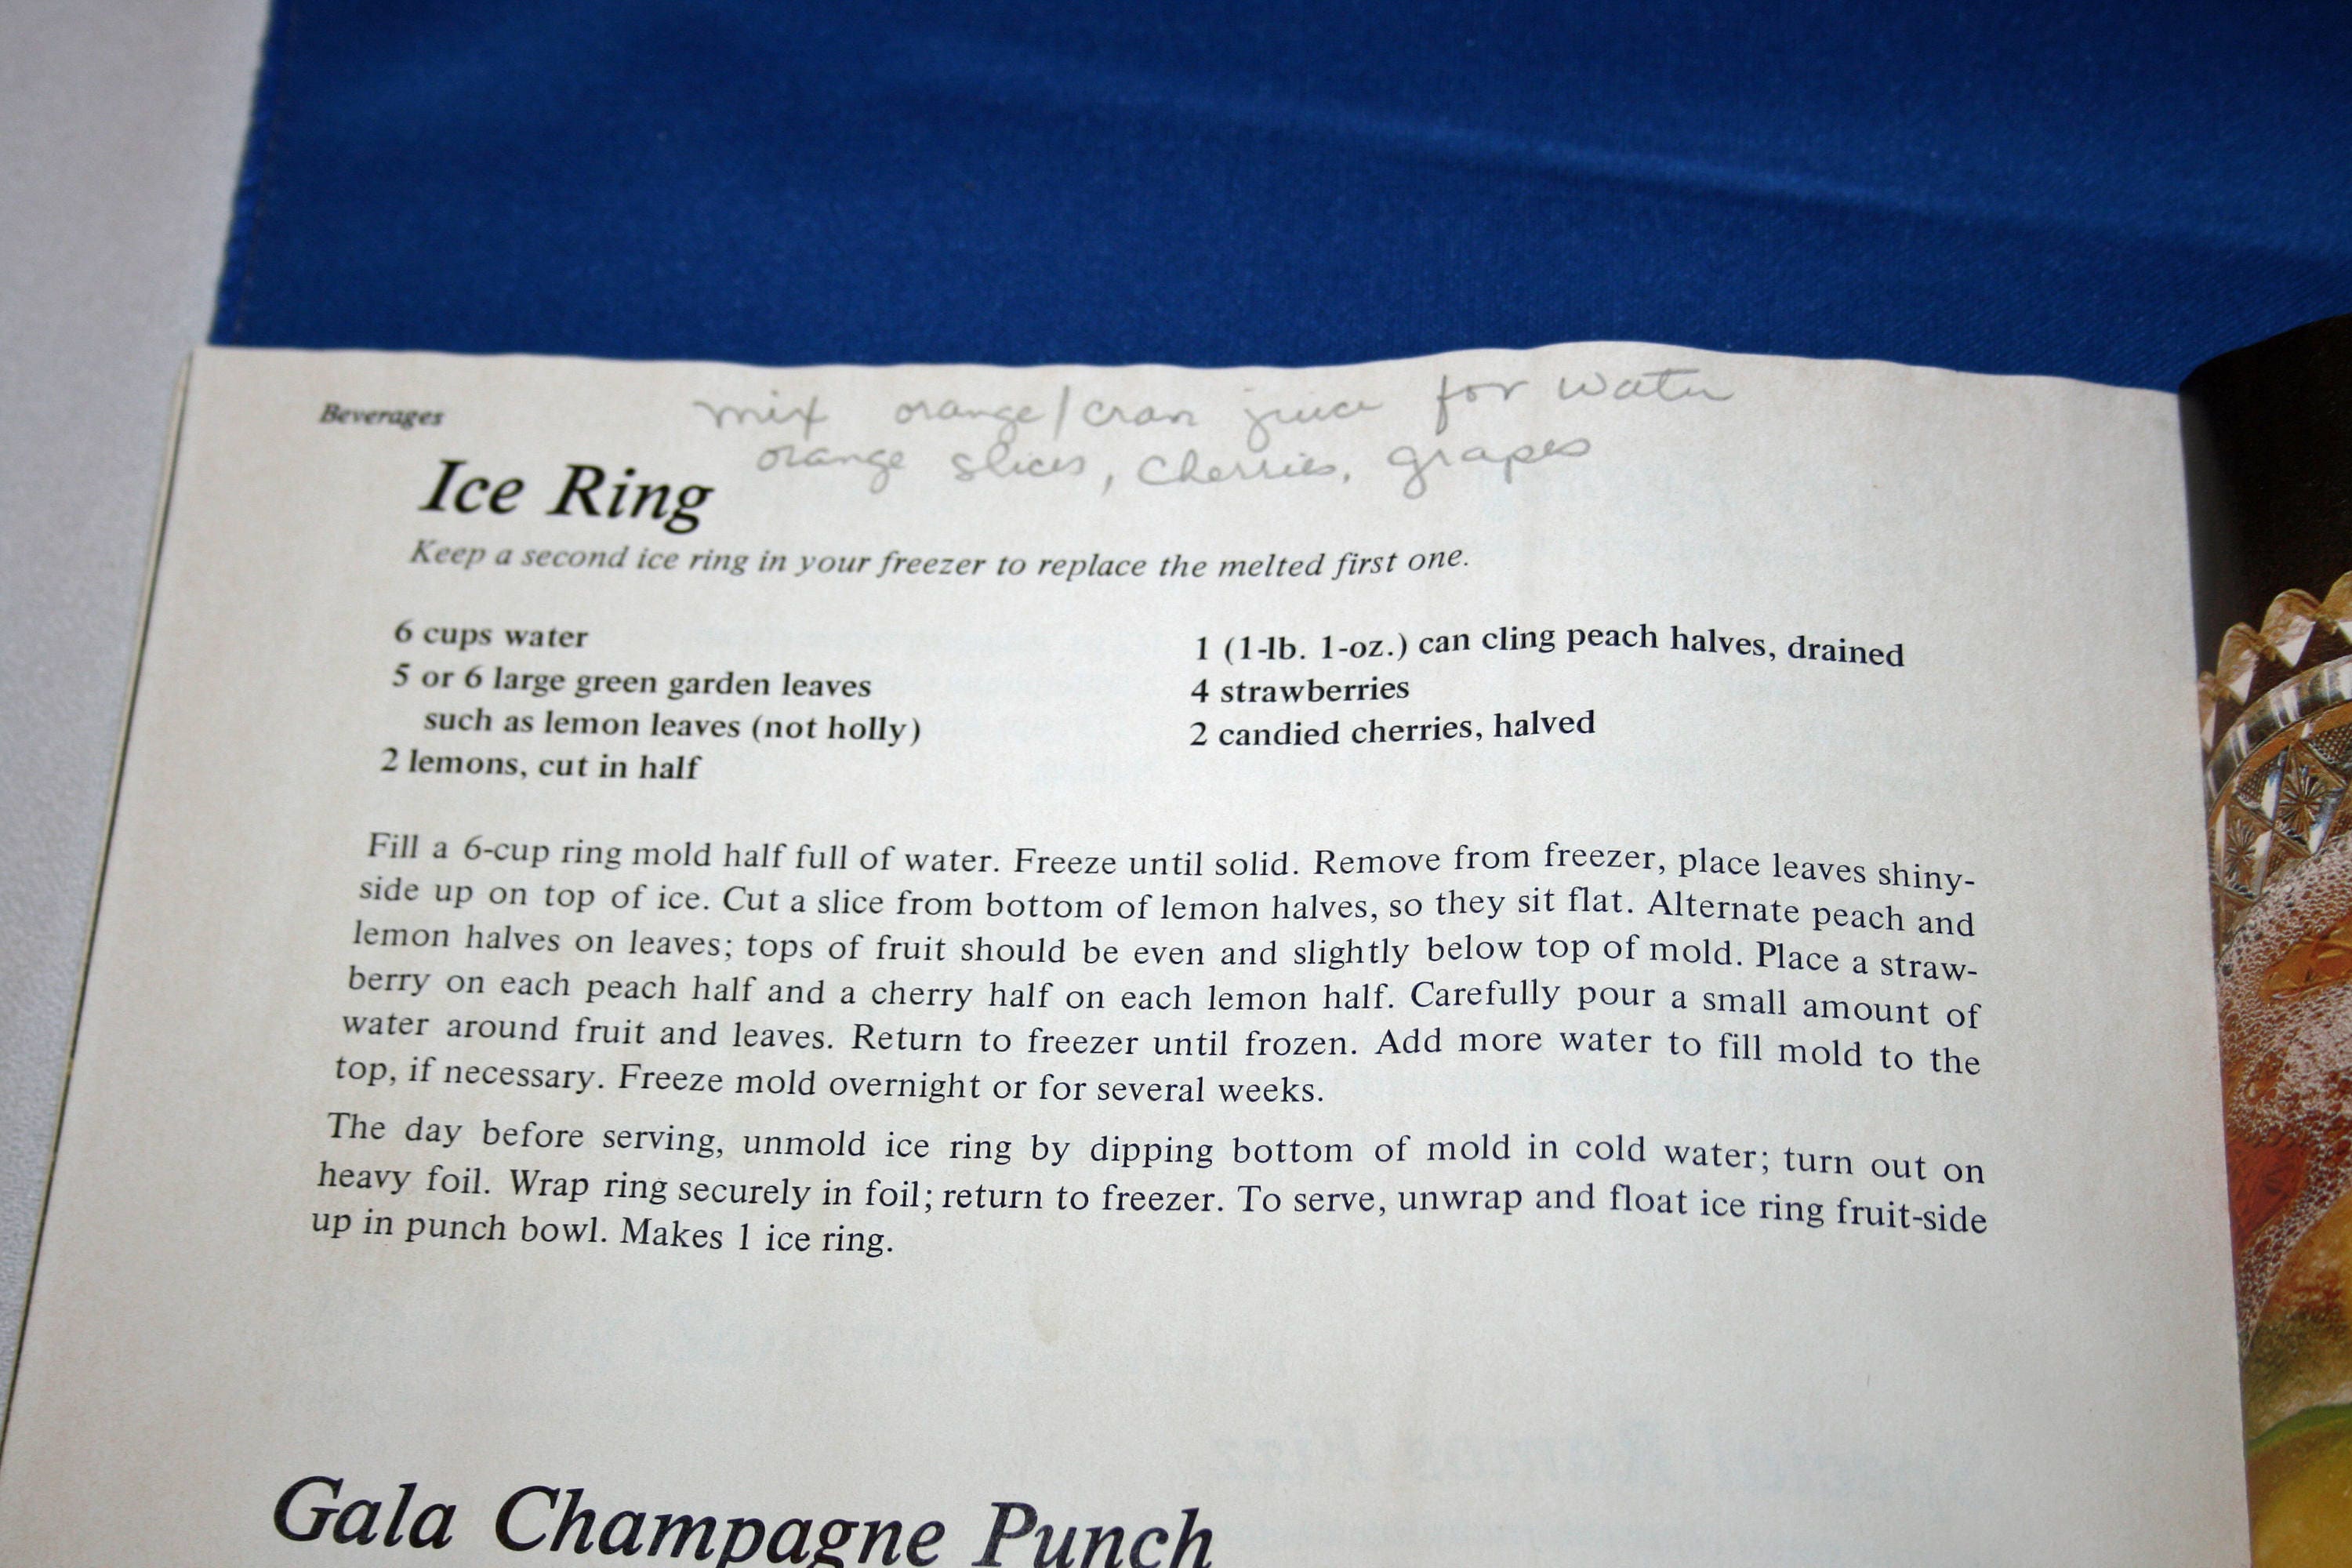 Beverages
mix orange/cran juice for water
orange slices, cherries, grapes
Ice Ring
Keep a second ice ring in your freezer to replace the melted first one.
6 cups water
5 or 6 large green garden leaves
such as lemon leaves (not holly)
2 lemons, cut in half
1 (1-lb. 1-oz.) can cling peach halves, drained
4 strawberries
2 candied cherries, halved
Fill a 6-cup ring mold half full of water. Freeze until solid. Remove from freezer, place leaves shiny-
side up on top of ice. Cut a slice from bottom of lemon halves, so they sit flat. Alternate peach and
lemon halves on leaves; tops of fruit should be even and slightly below top of mold. Place a straw-
berry on each peach half and a cherry half on each lemon half. Carefully pour a small amount of
water around fruit and leaves. Return to freezer until frozen. Add more water to fill mold to the
top, if necessary. Freeze mold overnight or for several weeks.
The day before serving, unmold ice ring by dipping bottom of mold in cold water; turn out on
heavy foil. Wrap ring securely in foil; return to freezer. To serve, unwrap and float ice ring fruit-side
up in punch bowl. Makes 1 ice ring.
Gala Champagne Punch